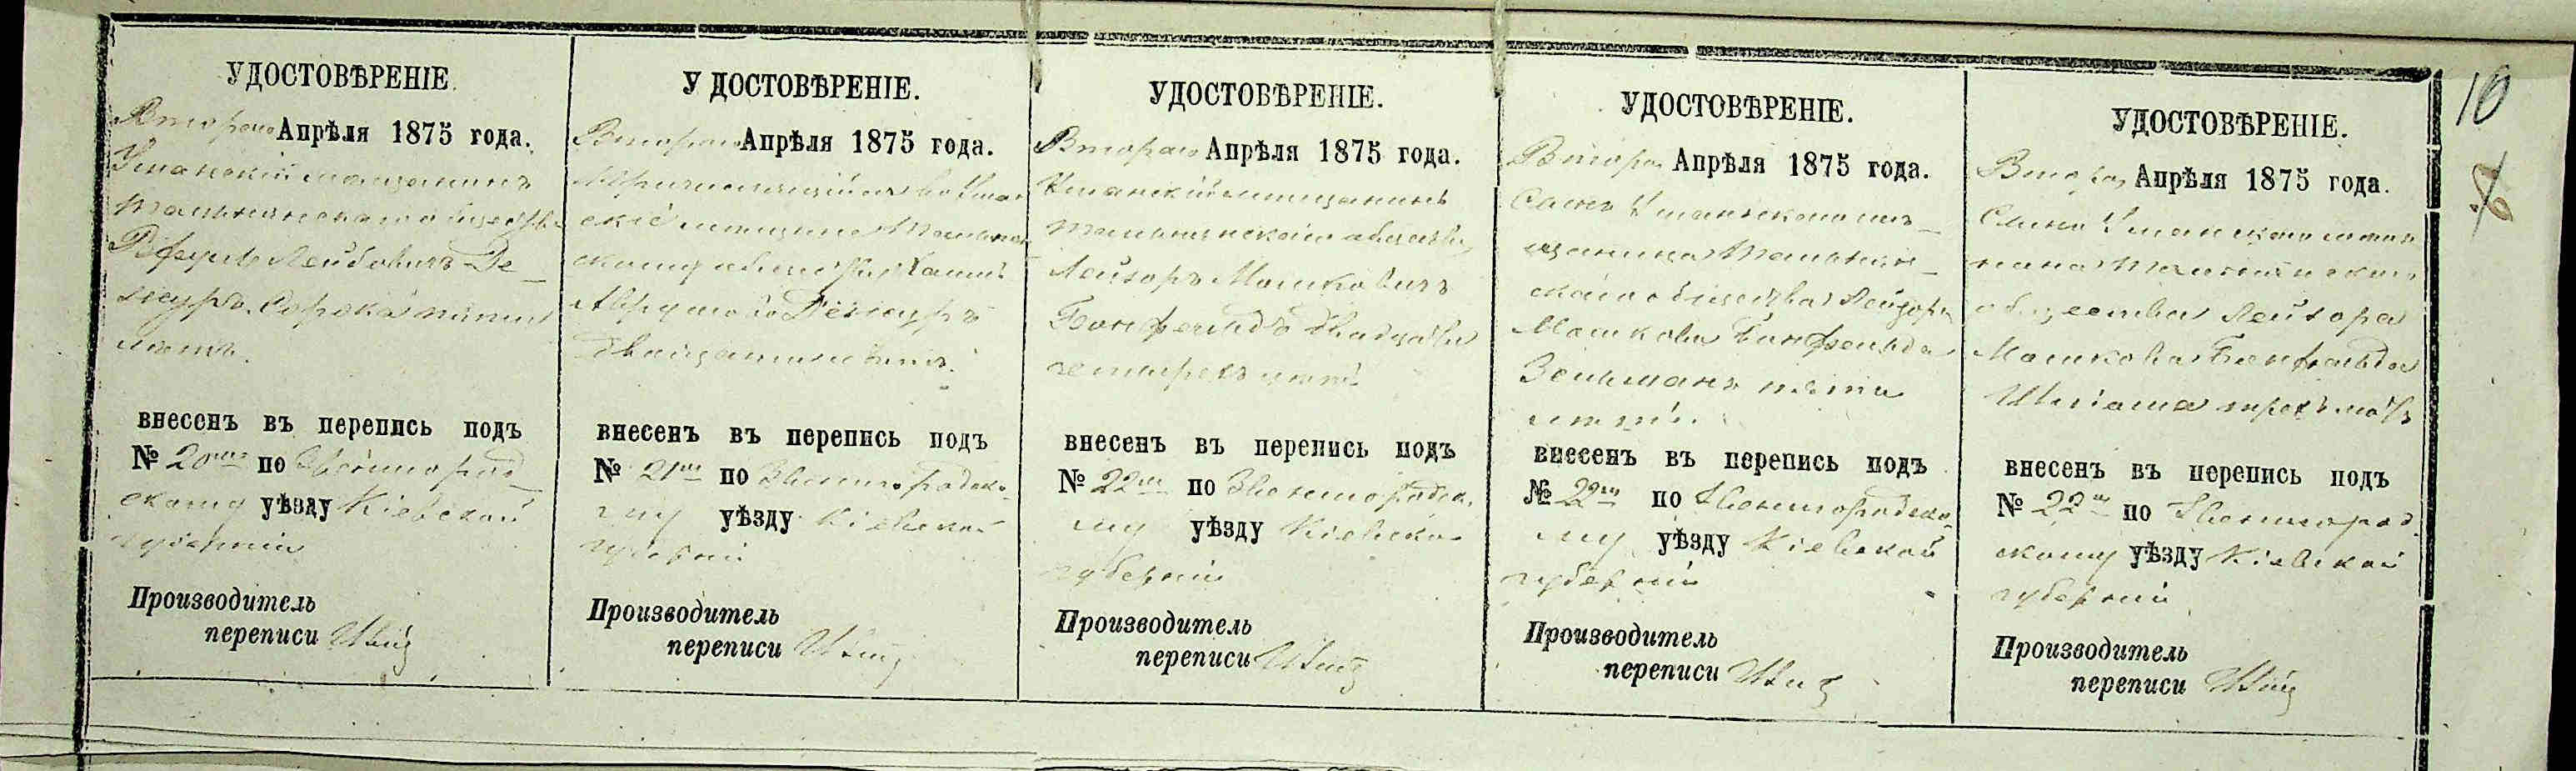 УДОСТОВѢРЕНІЕ.
Второго Апрѣля 1875 года.
Уманскій мещанинъ
Тальнянскаго общества
Лейбовичъ Де-
сорока пяти
лѣтъ.
внесенъ въ перепись подъ
№ 20мъ по Звенигород-
скому уѣзду Кіевской
губерніи
Производитель
переписи
У ДОСТОВѢРЕНІЕ.
Второго Апрѣля 1875 года.
во Уман
скіе мещане
обществу
двадцати лѣтъ.
внесенъ въ перепись подъ
№ 21мъ по Звенигородско-
му уѣзду Кіевской
губерніи
Производитель
переписи
УДОСТОВѢРЕНІЕ.
Второго Апрѣля 1875 года.
Уманскій мещанинъ
Тальнянскаго общества
Лейзоръ Мошковичъ
Бонфельдъ двадцати
четырехъ лѣтъ
внесенъ въ перепись подъ
№ 22мъ по Звенигородско-
му уѣзду Кіевской
губерніи
Производитель
переписи
УДОСТОВѢРЕНІЕ.
Второго Апрѣля 1875 года.
Сынъ Уманскаго ме-
щанина Тальнян-
скаго общества Лейзора
Мошкова Бонфельда
Зельманъ пяти
лѣтъ.
внесенъ въ перепись подъ
№ 22мъ по Звенигородско-
му уѣзду Кіевской
губерніи
Производитель
переписи
УДОСТОВѢРЕНІЕ.
Второго Апрѣля 1875 года.
Сынъ Уманскаго мещан
Тальнянскаго
общества Лейзора
Мошкова Бонфельда
трехъ лѣтъ
внесенъ въ перепись подъ
№ 22мъ по Звенигород
скому уѣзду Кіевской
губерніи
Производитель
переписи
10